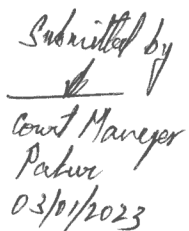 Submitted by
Court Manager
Patur
03/01/2023